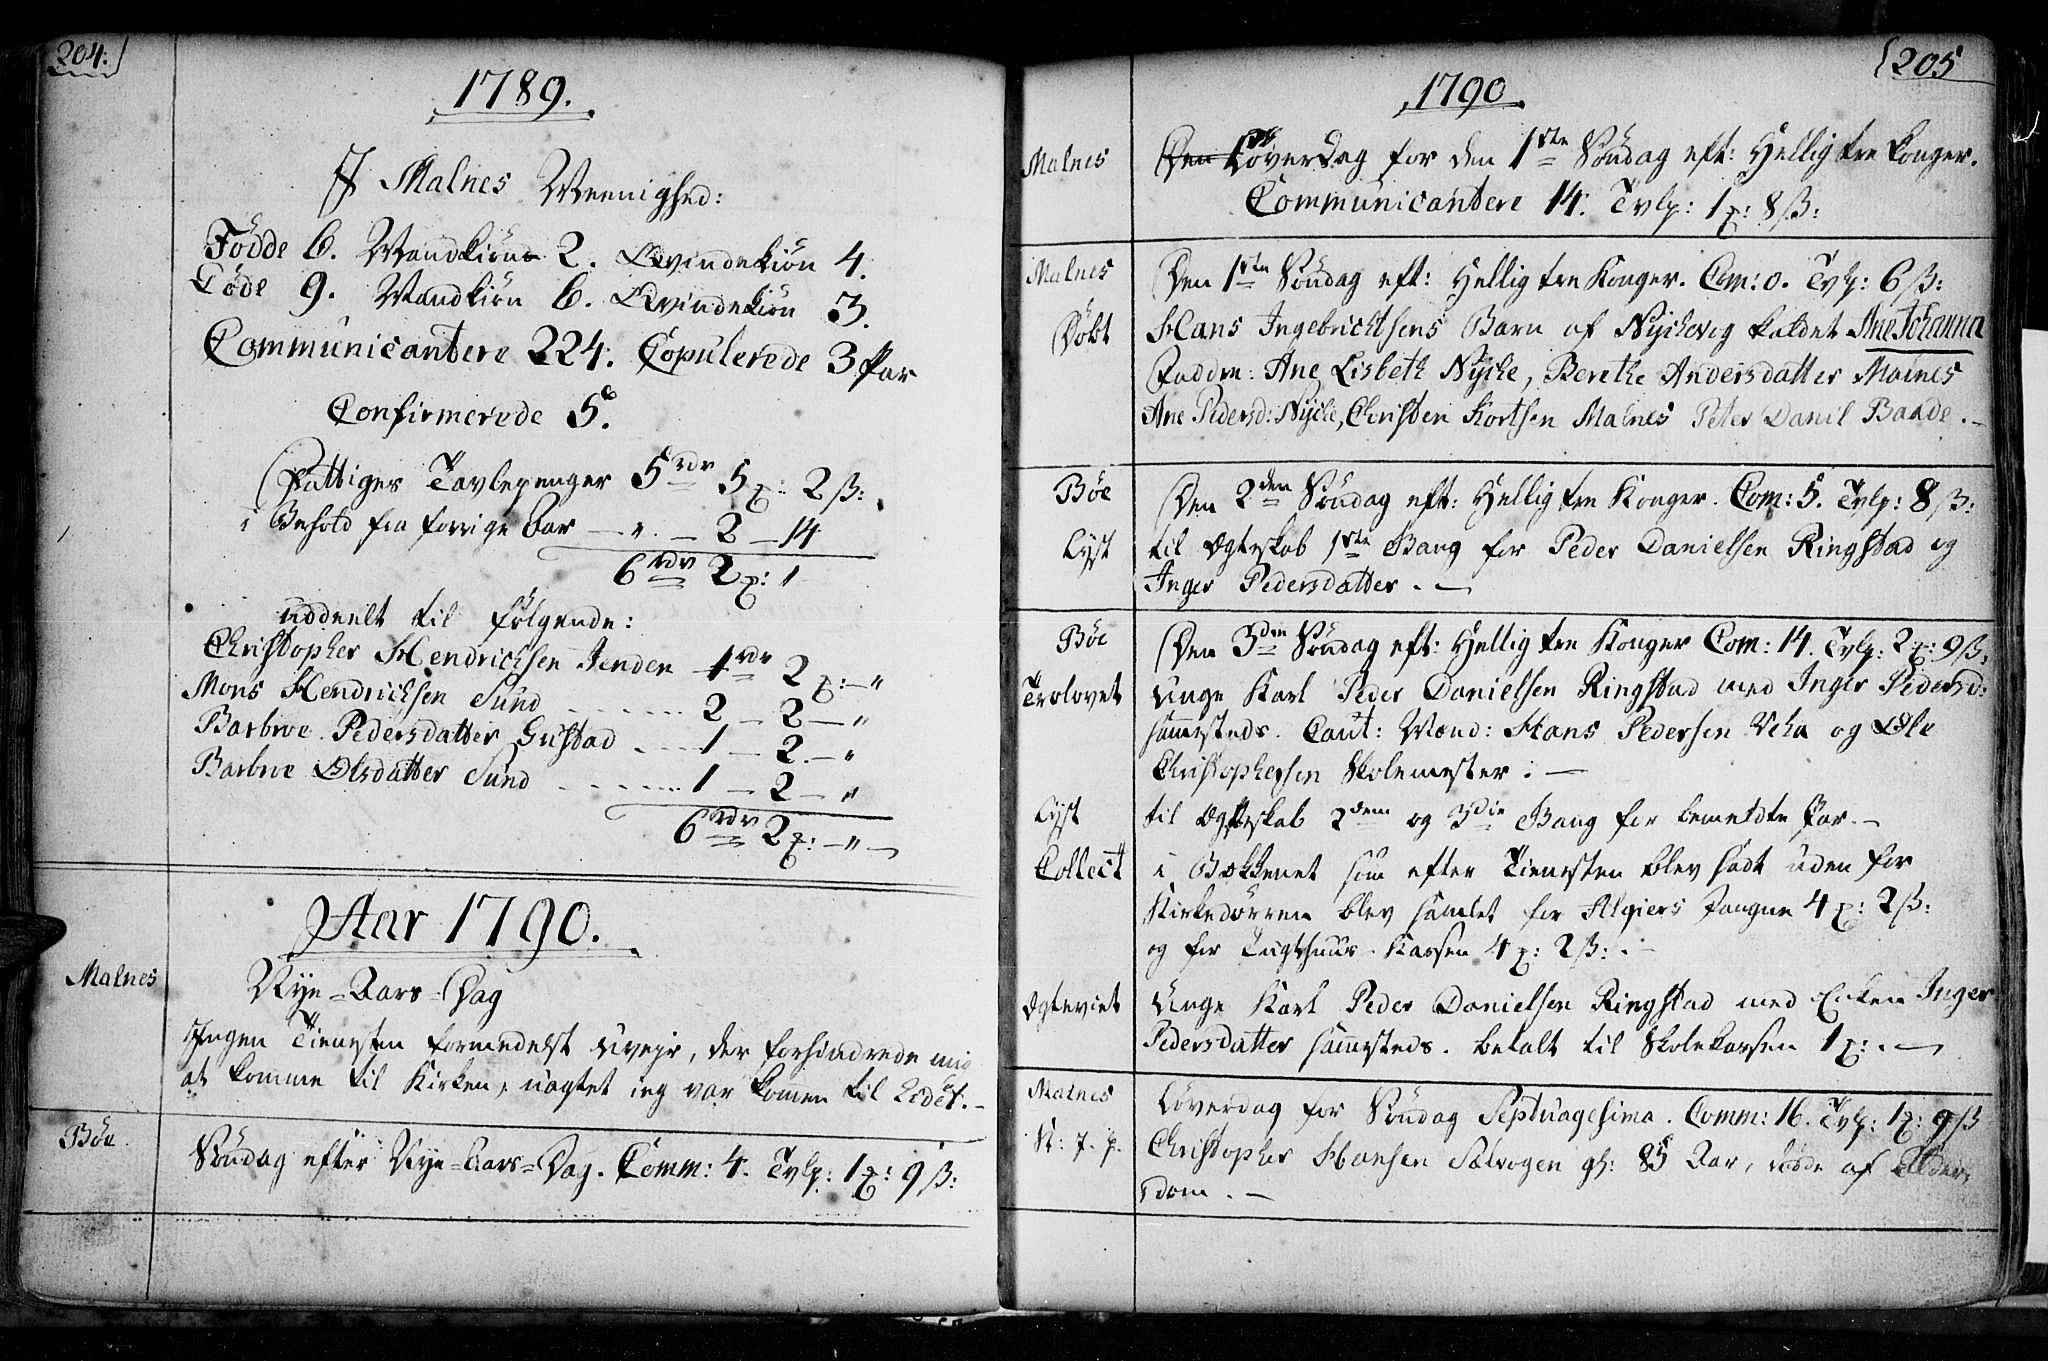 204.
1789.
I Malnes Meenighed:
Födde 6. Mandkiön 2. Qvindekiön 4.
Döde 9. Mandkiön 6. Qvindekiön 3.
Communicantere 224. Copulerede 3 Par
Confirmerede 5.
Fattiges Tavlepenger 5 rdr 5 χ: 2 β:
i Behold fra forrige Aar — " — 2 — 14
6 rdr 2 χ: 1
uddeelt til fölgende:
Christopher Hendrichsen Jenden 1 rdr 2 χ: — "
Mons Hendrichsen Sund ...... 2 — 2 — "
Barbroe Pedersdatter Gustad .... 1 — 2. — "
Barbroe Olsdatter Sund ...... 1 — 2 — "
6 rdr 2 χ: — " —
Aar 1790.
Malnes
Nye=Aars=Dag
Ingen Tienesten formedelst Uvejr, der forhindrede mig
at komme til Kirken, uagtet ieg var kommen til Eidet. —
Böe.
Söndag efter Nye=Aars=Dag. Comm: 4. Tvlp: 1 χ: 9 β:
205
1790
Malnes
Löverdag for den 1ste Söndag eft: Hellig tre Konger.
Communicantere 14. Tvlp: 1 χ: 8 β:
Malnes
Den 1ste Söndag eft: Hellig tre Konger. Com: 0. Tvlp: 6 β:
Döbt
Hans Ingebrichtsens Barn af Nyckevig kaldet Ane Johanna
Faddere: Ane Lisbeth Nycke, Berethe Andersdatter Malnes
Ane Pedersd: Nycke, Christen Kortsen Malnes Peter Danil Baade. —
Böe
Den 2den Söndag eft: Hellig tre Konger. Com: 5. Tvlp: 8 β:
Lyst
til Ægteskab 1ste Gang for Peder Danielsen Ringstad og
Inger Pedersdatter. —
Böe
Den 3die Söndag eft: Hellig tre Konger Com: 14. Tvlp: 2 χ: 9 β:
Trolovet
Unge Karl Peder Danielsen Ringstad med Inger Pedersd:
sammesteds. Caut: Mænd: Hans Pedersen Veha og Ole
Christophersen Skolemester. —
Lyst
til Ægteskab 2den og 3die Gang for bemeldte Par. —
Collect
i Bækkenet som efter Tienesten blev sadt uden for
Kirkedörren blev samlet for Algiers Fangne 4 χ: 2 β:
og for Tugthuus-Kassen 4 χ: 2 β: —
Ægteviet
Unge Karl Peder Danielsen Ringstad med Enken Inger
Pedersdatter sammesteds. betalt til Skolekassen 1 χ: —
Malnes
Löverdag for Söndag Septuagesima. Comm: 16. Tvlp: 1 χ: 9 β
Christopher Hansen Sælvogen gl: 85 Aar, döde af Alder,
dom. —